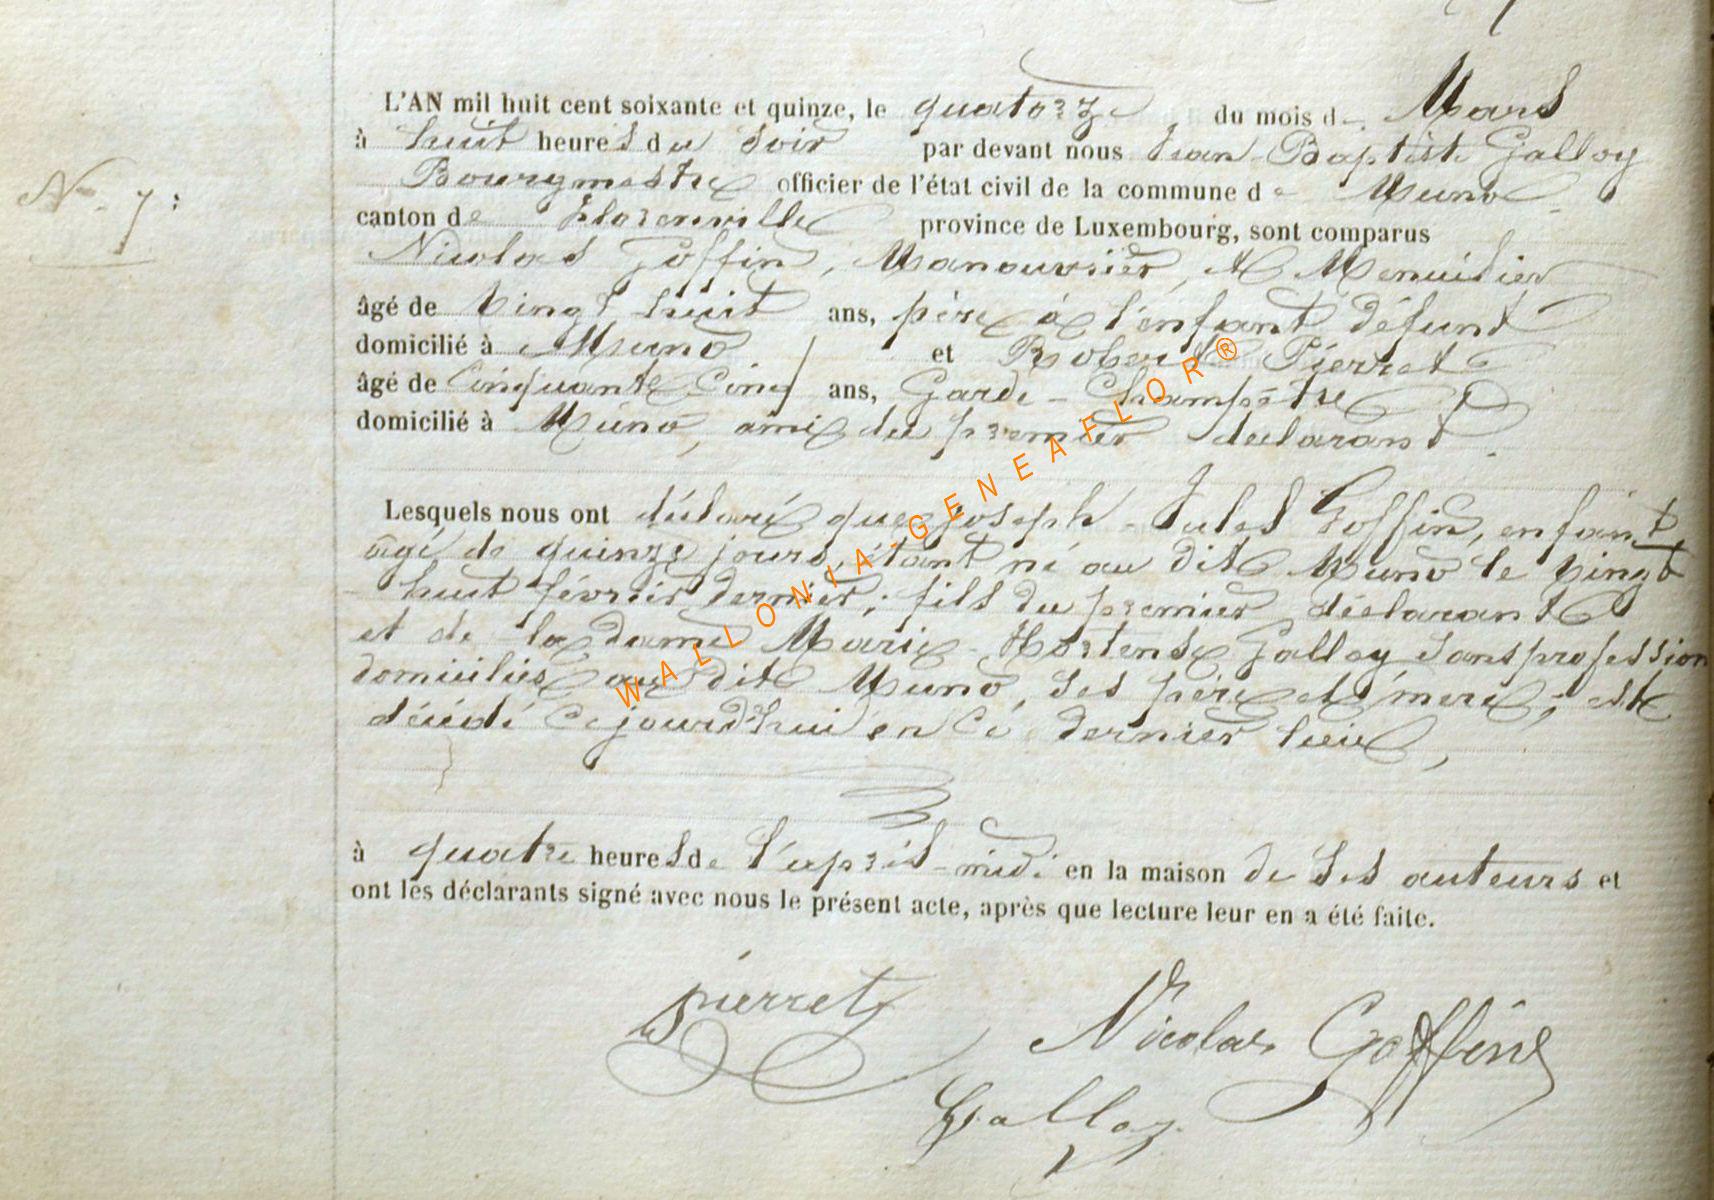 N° 7:
L'AN mil huit cent soixante et quinze, le quatorze du mois de Mars
à huit heures du soir par devant nous Jean-Baptiste Galloy
Bourgmestre officier de l'état civil de la commune de Muno
canton de Florenville province de Luxembourg, sont comparus
Nicolas Goffin, Manouvrier, & Menuisier
âgé de vingt huit ans, père à l'enfant défunt
domicilié à Muno et Robert Pierret
âgé de cinquante cinq ans, Garde-Champêtre
domicilié à Muno, ami du premier déclarant.
Lesquels nous ont déclaré que Joseph-Jules Goffin, enfant
âgé de quinze jours, étant né au dit Muno le vingt
huit février dernier; fils du premier déclarant
et de la dame Marie-Hortense Galloy sans profession
domiciliés au dit Muno, ses père et mère; est
décédé cejourd'hui en ce dernier lieu,
à quatre heures de l'après-midi en la maison de ses auteurs et
ont les déclarants signé avec nous le présent acte, après que lecture leur en a été faite.
Pierret
Nicolas Goffin
Galloy
WALLONIA-GENEAFLOR®